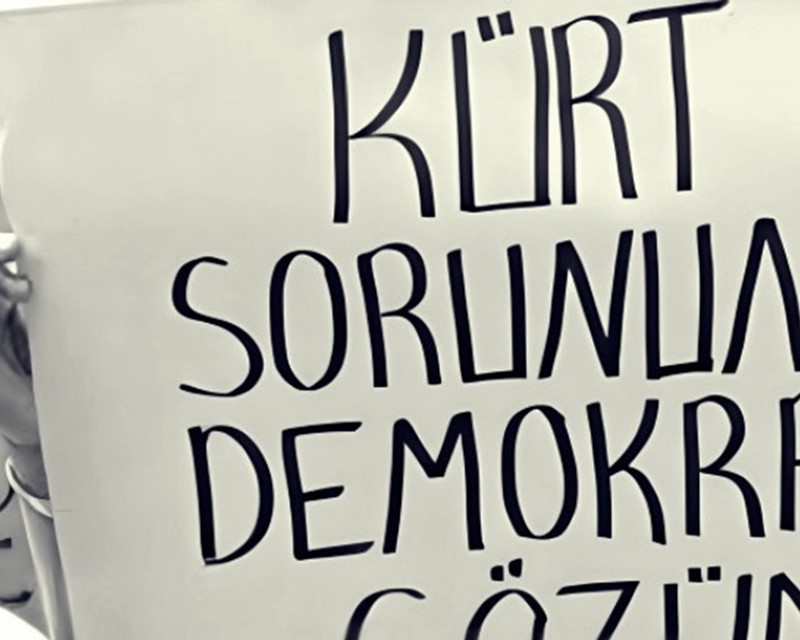 KÜRT
SORUNUN
DEMOKRA
ÇÖZÜM